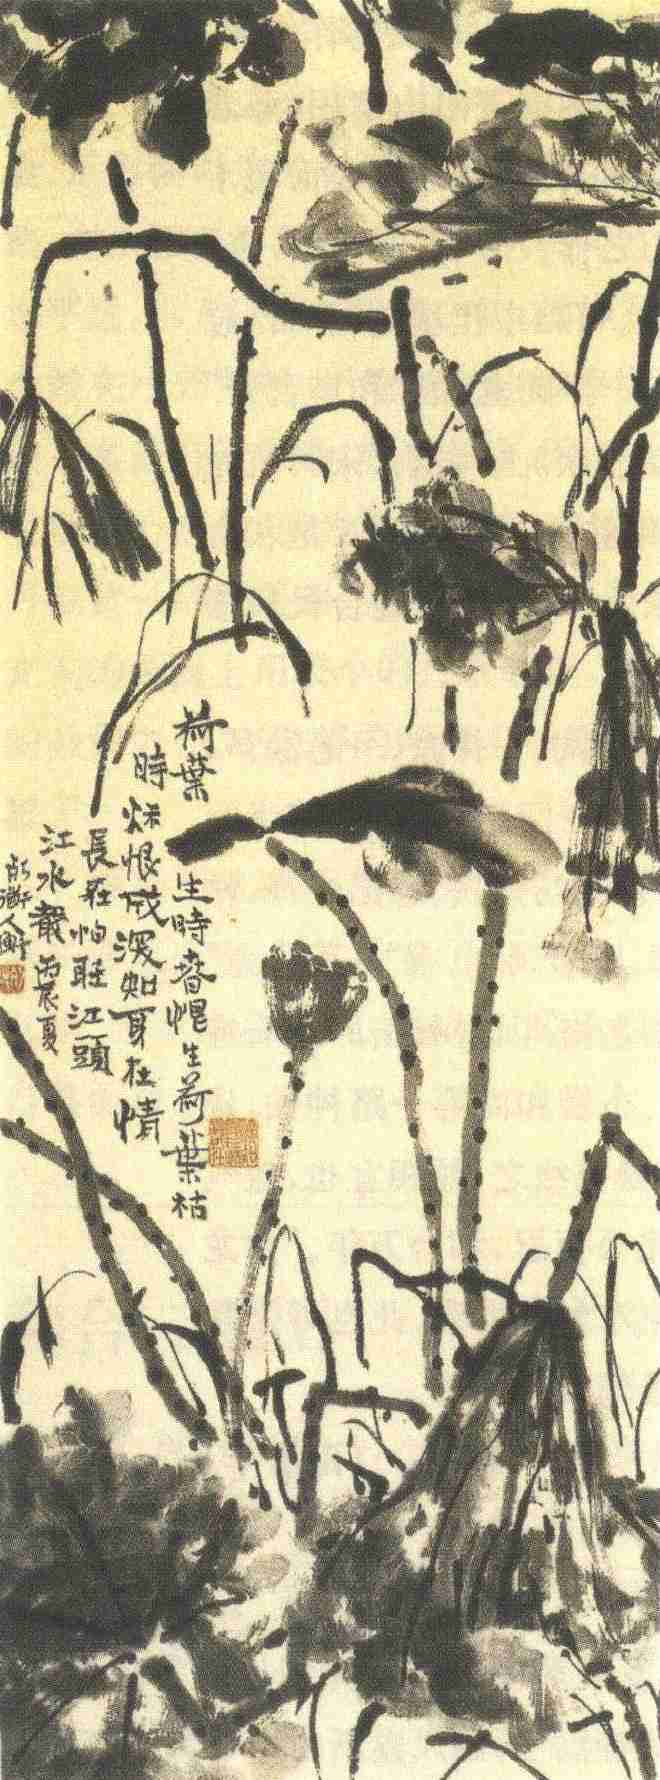 荷葉生時春恨生荷葉枯
時秌恨成深知身在情
長在怕聽江頭
江水聲 丙辰夏
人